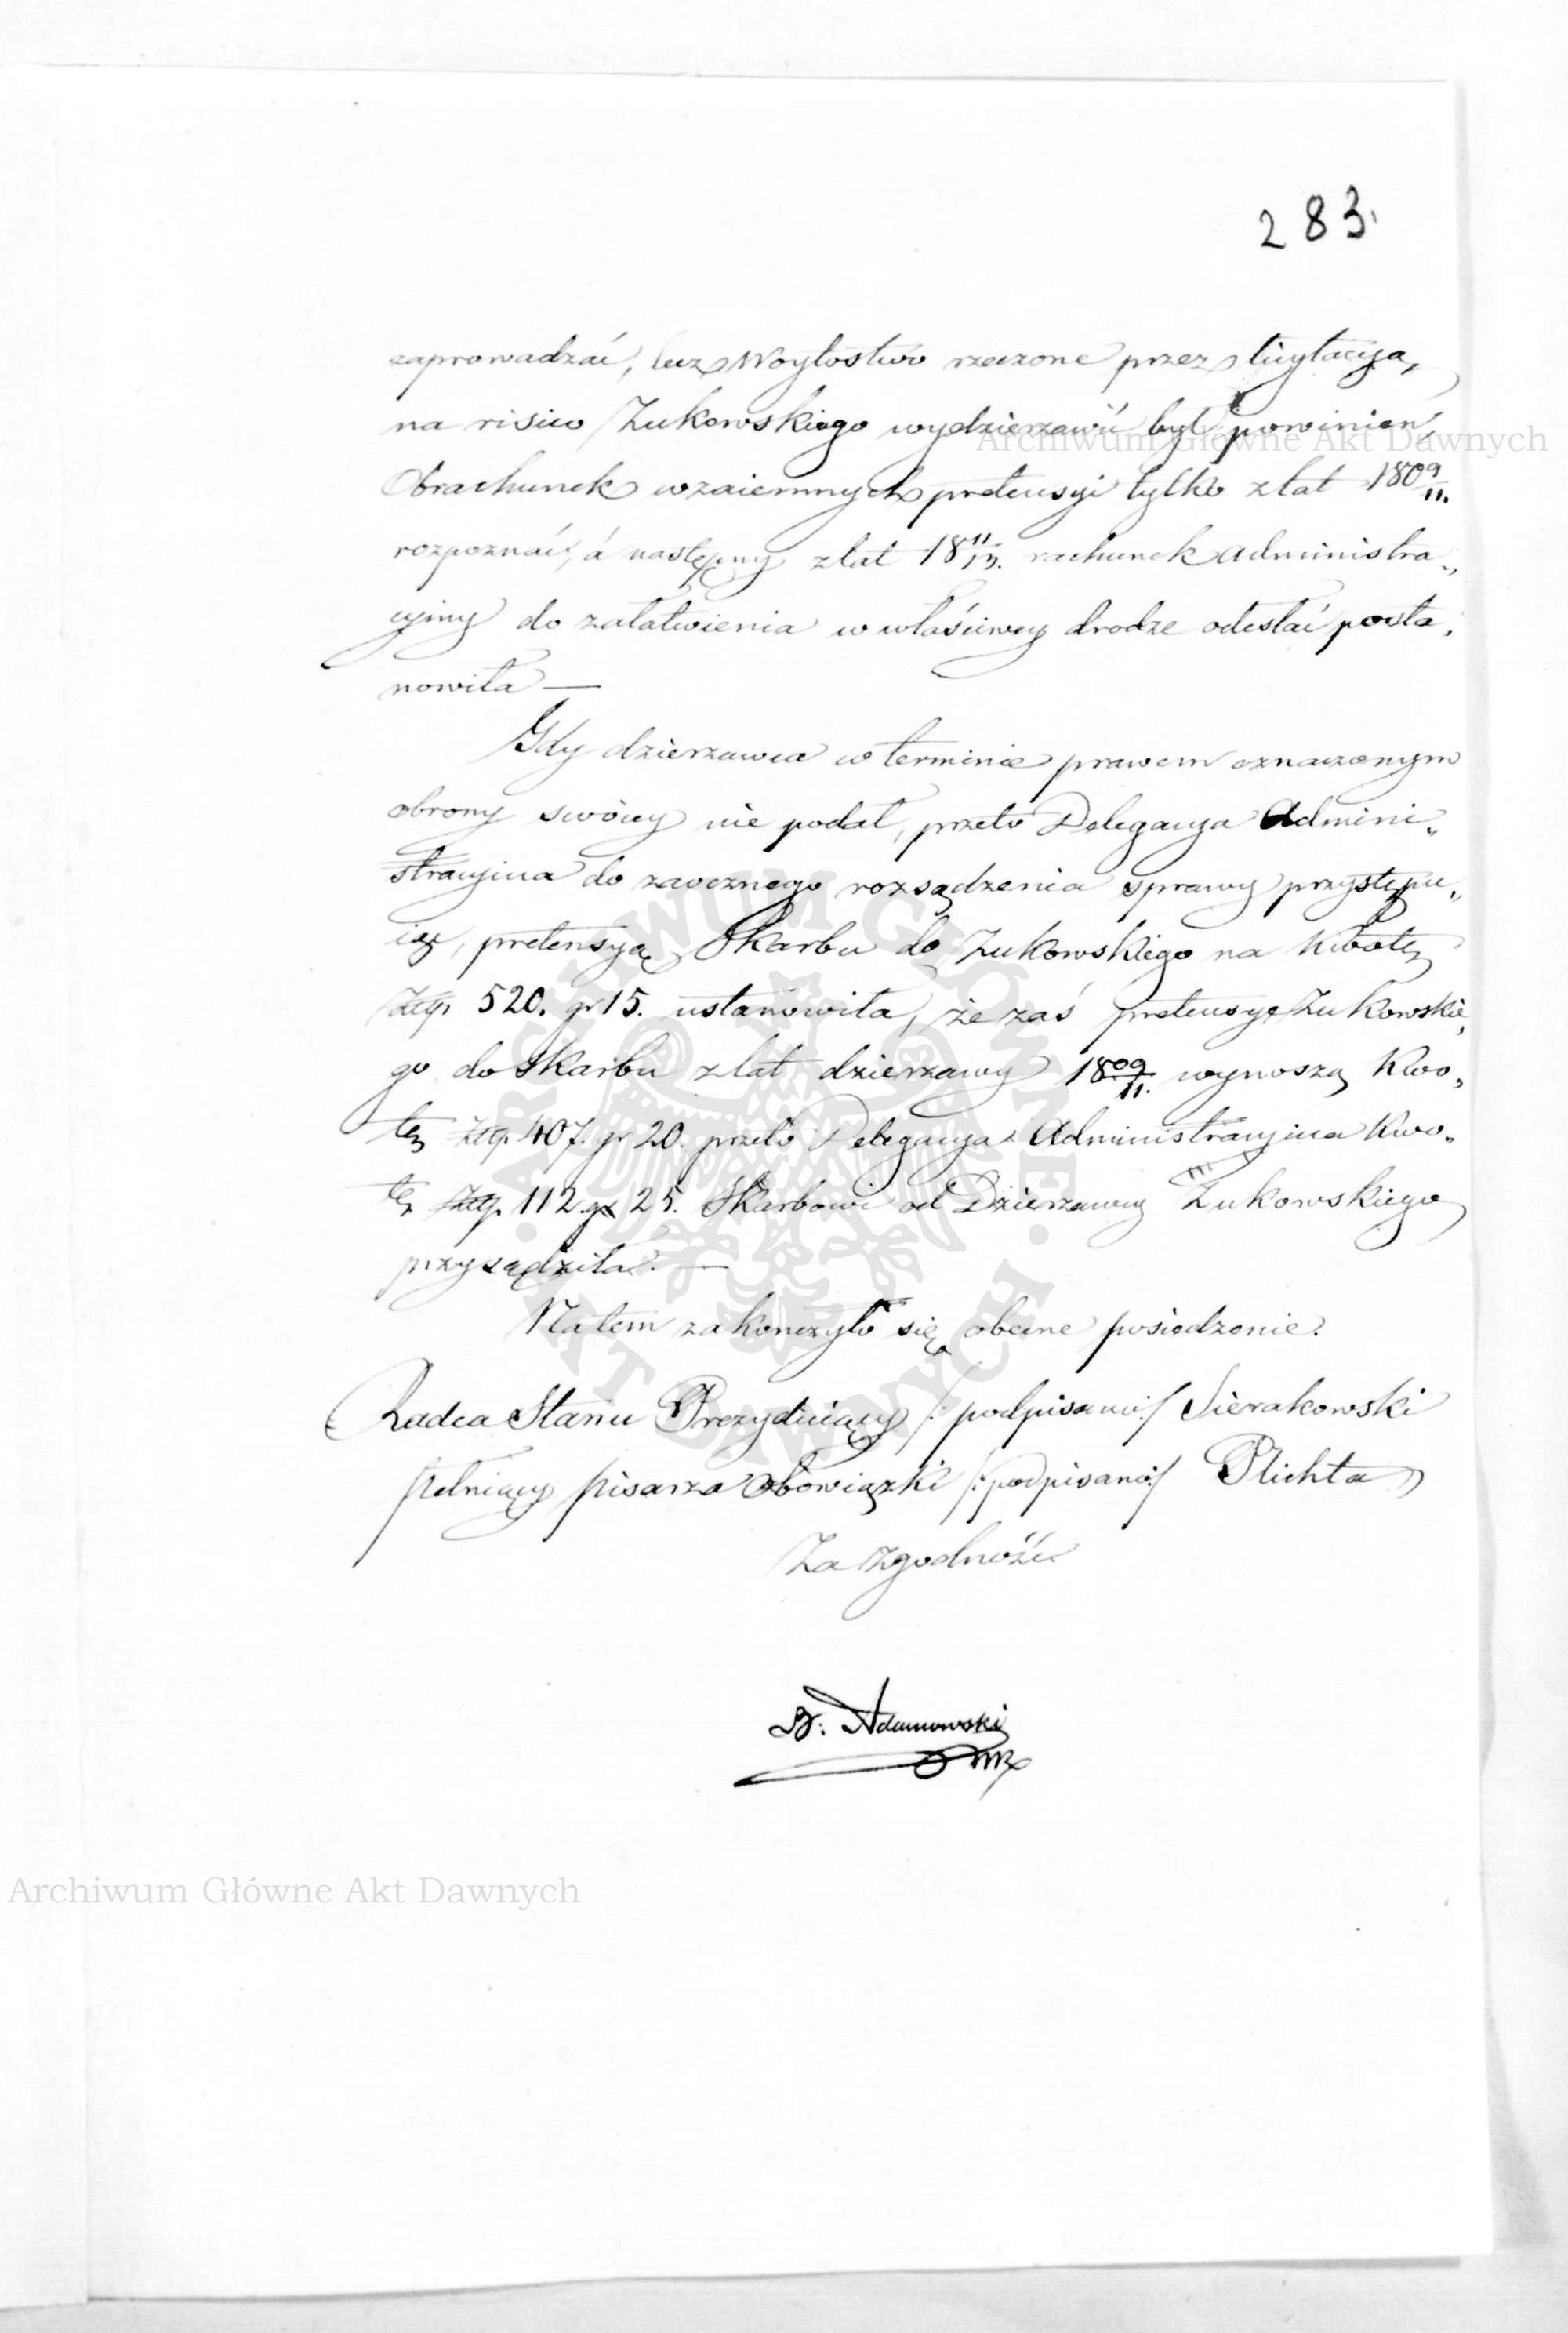 283.
zaprowadzać, lecz Woytostwo rzeczone przez licytacyją,
na risico Zukowskiego wydzierzawić był powinien,
Obrachunek wzaiemnych pretensyi tylko z lat 1809/11.
rozpoznać, a następny z lat 1811/13. rachunek administra„
cyiny do załatwienia w właściwey drodze odesłać posta„
nowiła —
Gdy dzierzawca w terminie prawem oznaczonym
obrony swóiey nie podał, przeto Delegacya Admini„
stracyina do zaocznego rozsądzenia sprawy przystępu„
iąc, pretensyą Skarbu do Zukowskiego na kwotę
Złtp. 520. gr 15. ustanowiła, że zaś pretensye Zukowskie„
go do Skarbu z lat dzierzawy 1809/11. wynoszą kwo„
tę Złtp. 407. gr 20. przeto Delegacya Administracyina kwo„
tę Złtp. 112. gr 25. Skarbowi od Dzierzawcy Zukowskiego
przysądziła. —
Na tem zakończyło się obecne posiedzenie.
Radca Stanu Prezyduiący /: podpisano :/ Sierakowski
pełniący pisarza obowiązki /: podpisano :/ Plichta
Za Zgodność
Adamowski
Archiwum Główne Akt Dawnych
Archiwum Główne Akt Dawnych
ARCHIWUM GŁÓWNE · AKT DAWNYCH ·